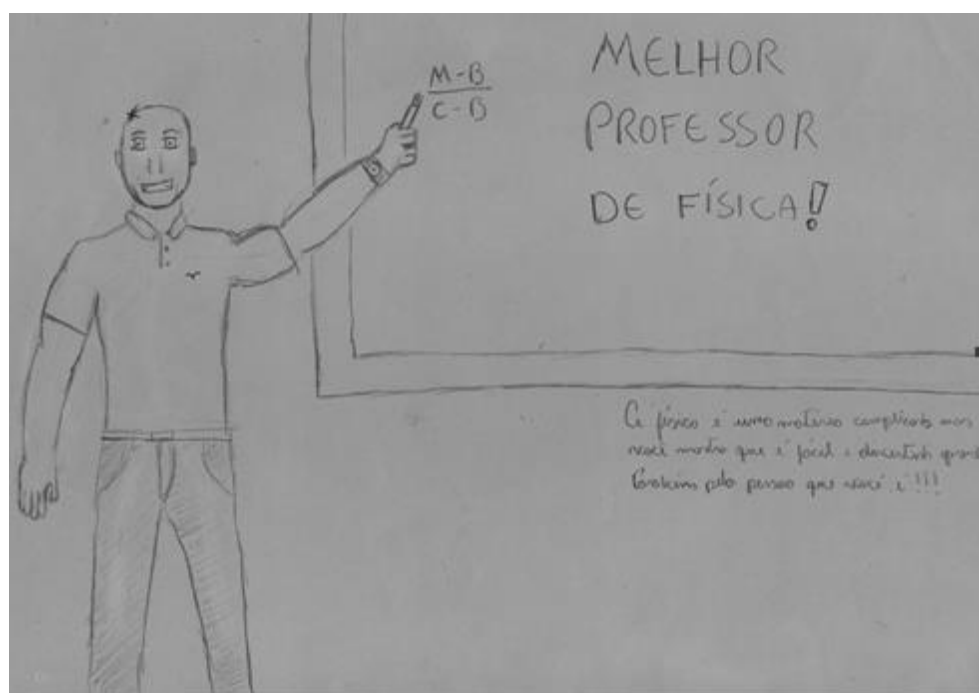 M-B
C-B
MELHOR
PROFESSOR
DE FÍSICA!
A física é uma matéria complicada mas
você mostra que é fácil e
Parabéns pela pessoa que você é!!!